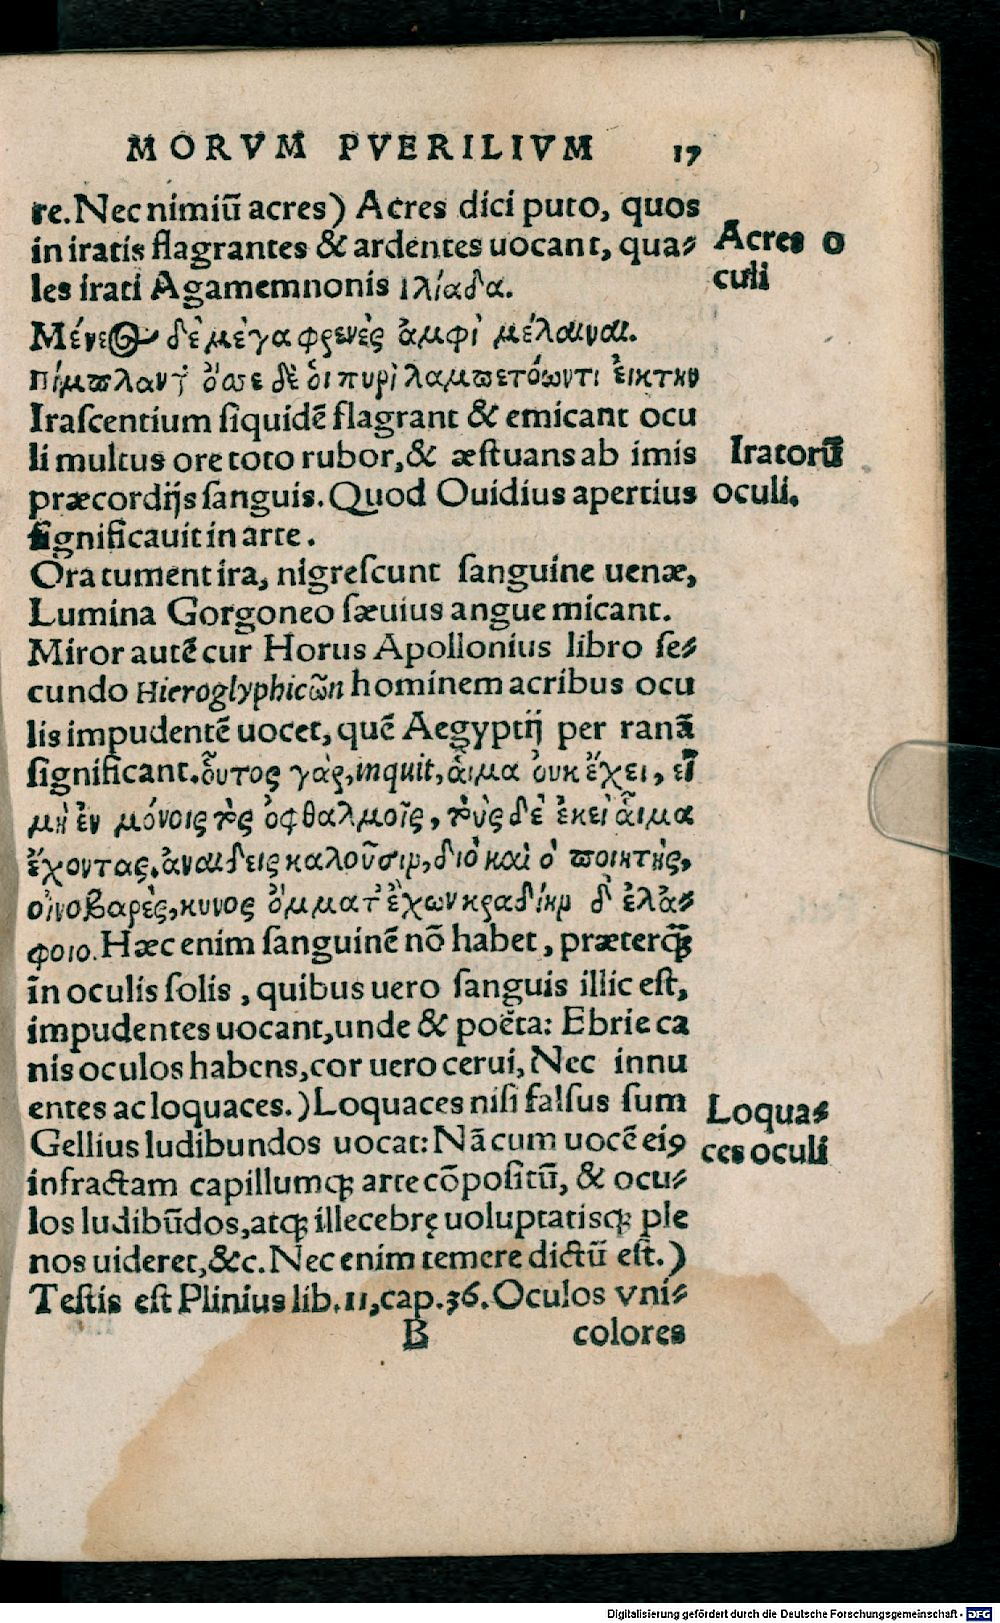 MORVM PVERILIVM 17
re. Nec nimiũ acres) Acres dici puto, quos
in iratis flagrantes & ardentes uocant, qua-
les irati Agamemnonis ιλίαδα.
Acres o
culi
Μένεος δὲ μέγα φρενὲς ἀμφὶ μέλαιναι.
πίμπλαντ' ὄσσε δὲ ὁι πυρὶ λαμπετόωντι ἐικτην
Irascentium siquidẽ flagrant & emicant ocu
li multus ore toto rubor, & æstuans ab imis
præcordijs sanguis. Quod Ouidius apertius
significauit in arte.
Iratorũ
oculi.
Ora tument ira, nigrescunt sanguine uenæ,
Lumina Gorgoneo sæuius angue micant.
Miror autẽ cur Horus Apollonius libro se-
cundo Hieroglyphicῶn hominem acribus ocu
lis impudentẽ uocet, quẽ Aegyptij per ranã
significant. ὅυτος γὰρ, inquit, ἁιμα ὀυκ ἔχει, εἰ
μὴ ἐν μόνοις τοῖς ὀφθαλμοῖς, τοὺς δὲ ἐκεὶ ἁῖμα
ἔχοντας, ἀναιδεις καλοῦσιν, διὸ καὶ ὁ ποιητὴς,
οἰνοβαρὲς, κυνος ὄμματ' ἔχων κραδίην δ' ἐλά-
φοιο. Hæc enim sanguinẽ nõ habet, præterq̃
in oculis solis, quibus uero sanguis illic est,
impudentes uocant, unde & poëta: Ebrie ca
nis oculos habens, cor uero cerui, Nec innu
entes ac loquaces.) Loquaces nisi falsus sum
Gellius ludibundos uocat: Nã cum uocẽ eiꝰ
infractam capillumq; arte cõpositũ, & ocu-
los ludibũdos, atq; illecebrę uoluptatisq; ple
nos uideret, &c. Nec enim temere dictũ est.)
Loqua-
ces oculi
Testis est Plinius lib. 11, cap. 36. Oculos vni-
B colores
Digitalisierung gefördert durch die Deutsche Forschungsgemeinschaft - DFG